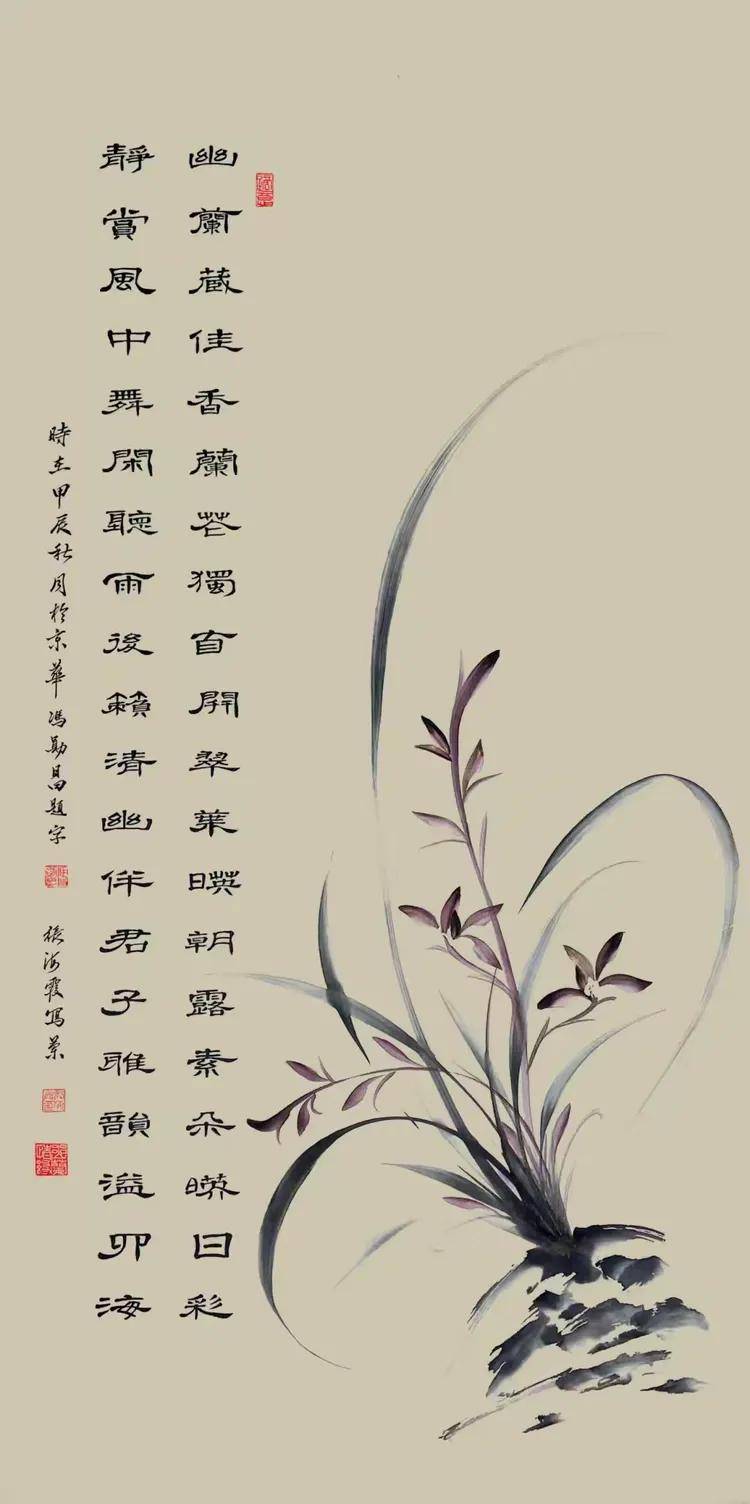 幽蘭藏佳香蘭花獨自開翠葉暎朝露素朵暎日彩
靜賞風中舞閑聽雨後籟清幽伴君子雅韻溢四海
時在甲辰秋月於京華馮勛昌題字
張海霞寫蘭